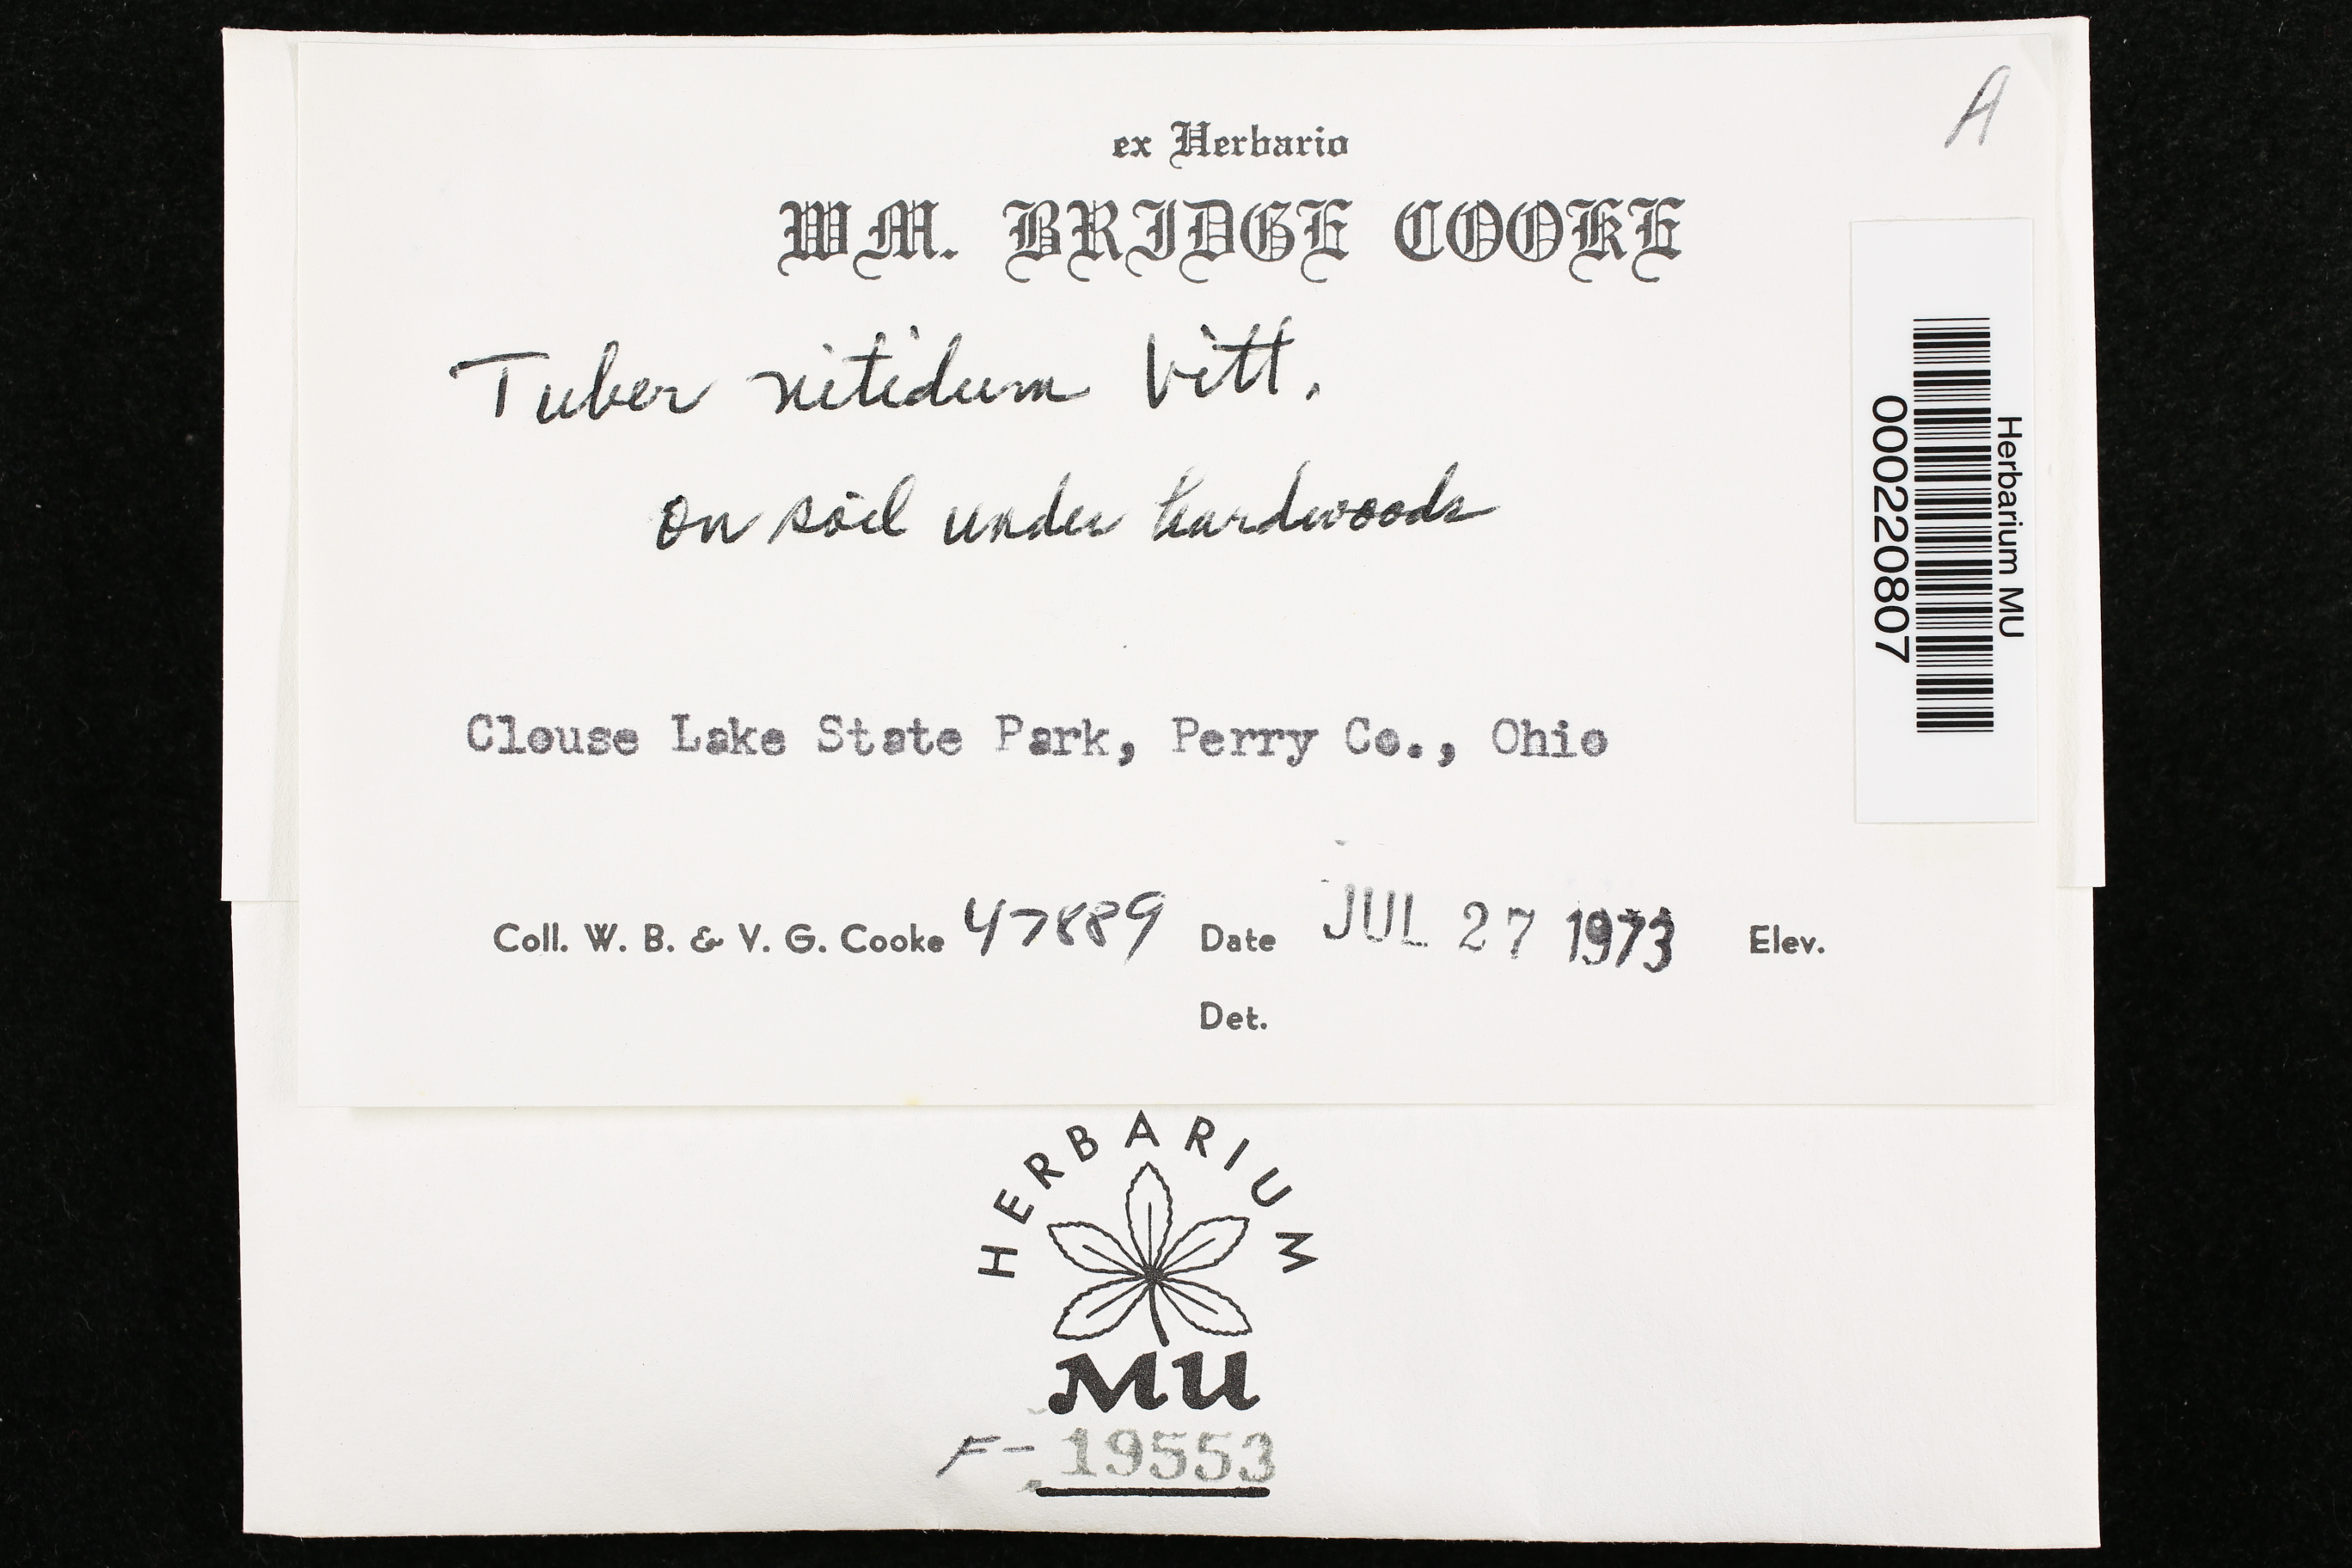 A
ex Herbario
WM. BRIDGE COOKE
Tuber nitidum Vitt.
on soil under hardwoods
Clouse Lake State Park, Perry Co., Ohio
Coll. W. B. & V. G. Cooke 47889 Date JUL 27 1973 Elev.
Det.
Herbarium MU
000220807
HERBARIUM
MU
F- 19553